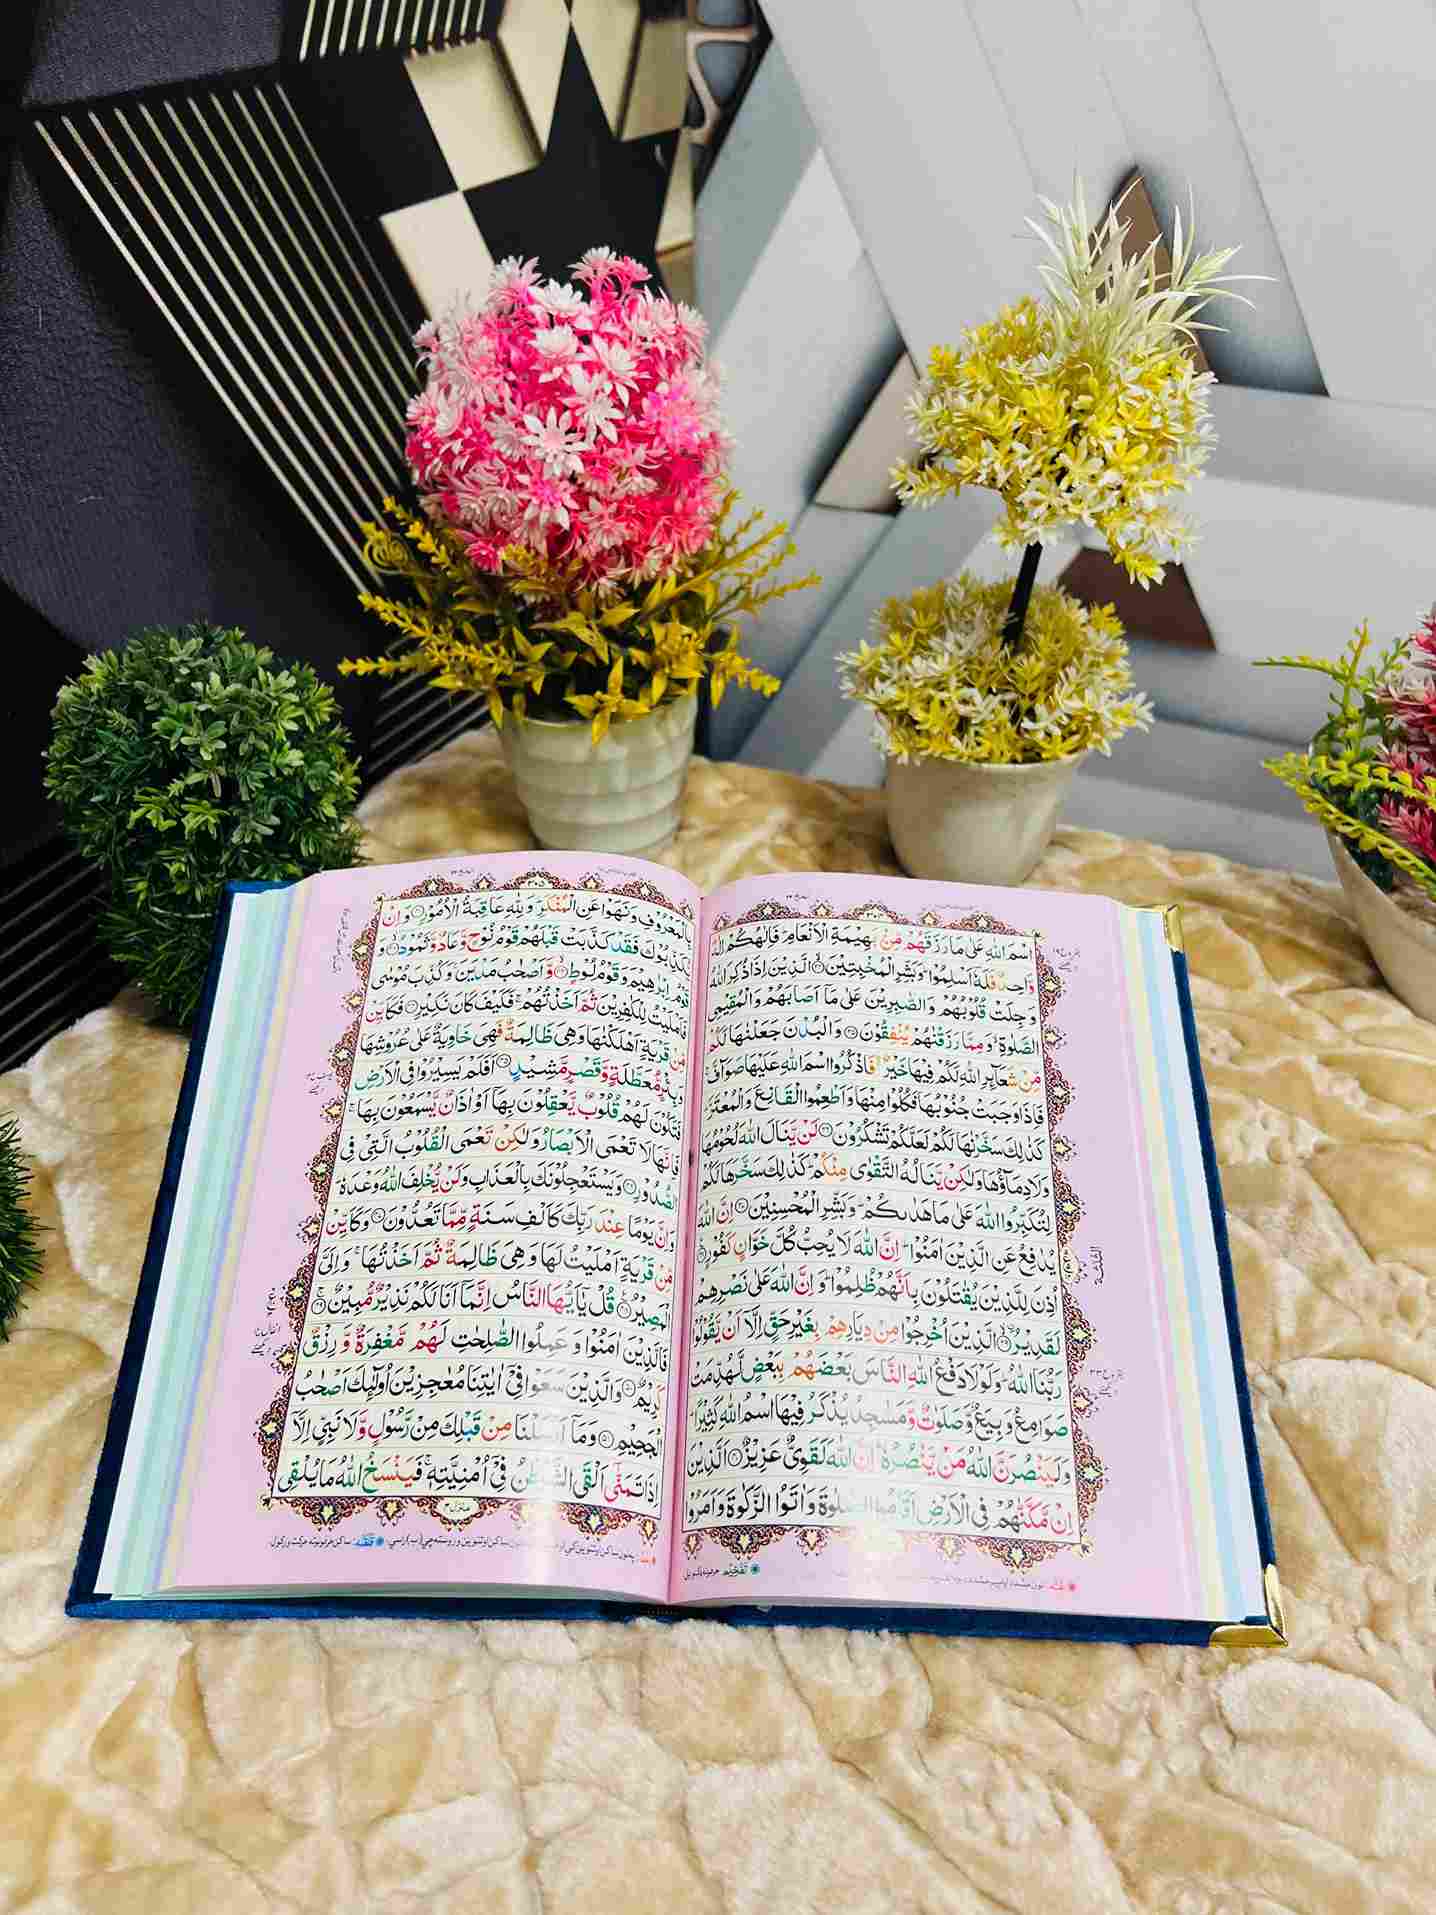 ۳۰۴
اسْمَ اللّٰهِ عَلٰى مَا رَزَقَهُمْ مِّنْۢ بَهِيْمَةِ الْاَنْعَامِ ؕ فَاِلٰهُكُمْ اِلٰهٌ
وَّاحِدٌ فَلَهٗۤ اَسْلِمُوْا ؕ وَبَشِّرِ الْمُخْبِتِيْنَ ۙ﴿۳۴﴾ الَّذِيْنَ اِذَا ذُكِرَ اللّٰهُ
وَجِلَتْ قُلُوْبُهُمْ وَالصّٰبِرِيْنَ عَلٰى مَاۤ اَصَابَهُمْ وَالْمُقِيْمِى
الصَّلٰوةِ ۙ وَمِمَّا رَزَقْنٰهُمْ يُنْفِقُوْنَ ﴿۳۵﴾ وَالْبُدْنَ جَعَلْنٰهَا لَكُمْ
مِّنْ شَعَآئِرِ اللّٰهِ لَكُمْ فِيْهَا خَيْرٌ ۖ فَاذْكُرُوا اسْمَ اللّٰهِ عَلَيْهَا صَوَآفَّ ۚ
فَاِذَا وَجَبَتْ جُنُوْبُهَا فَكُلُوْا مِنْهَا وَاَطْعِمُوا الْقَانِعَ وَالْمُعْتَرَّ ؕ
كَذٰلِكَ سَخَّرْنٰهَا لَكُمْ لَعَلَّكُمْ تَشْكُرُوْنَ ﴿۳۶﴾ لَنْ يَّنَالَ اللّٰهَ لُحُوْمُهَا
وَلَا دِمَآؤُهَا وَلٰكِنْ يَّنَالُهُ التَّقْوٰى مِنْكُمْ ؕ كَذٰلِكَ سَخَّرَهَا لَكُمْ
لِتُكَبِّرُوا اللّٰهَ عَلٰى مَا هَدٰىكُمْ ؕ وَبَشِّرِ الْمُحْسِنِيْنَ ﴿۳۷﴾ اِنَّ اللّٰهَ
يُدٰفِعُ عَنِ الَّذِيْنَ اٰمَنُوْا ؕ اِنَّ اللّٰهَ لَا يُحِبُّ كُلَّ خَوَّانٍ كَفُوْرٍ ﴿۳۸﴾
اُذِنَ لِلَّذِيْنَ يُقٰتَلُوْنَ بِاَنَّهُمْ ظُلِمُوْا ؕ وَاِنَّ اللّٰهَ عَلٰى نَصْرِهِمْ
لَقَدِيْرُ ۙ﴿۳۹﴾ الَّذِيْنَ اُخْرِجُوْا مِنْ دِيَارِهِمْ بِغَيْرِ حَقٍّ اِلَّاۤ اَنْ يَّقُوْلُوْا
رَبُّنَا اللّٰهُ ؕ وَلَوْلَا دَفْعُ اللّٰهِ النَّاسَ بَعْضَهُمْ بِبَعْضٍ لَّهُدِّمَتْ
صَوَامِعُ وَبِيَعٌ وَّصَلَوٰتٌ وَّمَسٰجِدُ يُذْكَرُ فِيْهَا اسْمُ اللّٰهِ كَثِيْرًا ؕ
وَلَيَنْصُرَنَّ اللّٰهُ مَنْ يَّنْصُرُهٗ ؕ اِنَّ اللّٰهَ لَقَوِىٌّ عَزِيْزٌ ﴿۴۰﴾ اَلَّذِيْنَ
اِنْ مَّكَّنّٰهُمْ فِى الْاَرْضِ اَقَامُوا الصَّلٰوةَ وَاٰتَوُا الزَّكٰوةَ وَاَمَرُوْا
۳۰۵
بِالْمَعْرُوْفِ وَنَهَوْا عَنِ الْمُنْكَرِ ؕ وَلِلّٰهِ عَاقِبَةُ الْاُمُوْرِ ﴿۴۱﴾ وَاِنْ
يُّكَذِّبُوْكَ فَقَدْ كَذَّبَتْ قَبْلَهُمْ قَوْمُ نُوْحٍ وَّعَادٌ وَّثَمُوْدُ ۙ﴿۴۲﴾ وَ
قَوْمُ اِبْرٰهِيْمَ وَقَوْمُ لُوْطٍ ۙ﴿۴۳﴾ وَّاَصْحٰبُ مَدْيَنَ ۚ وَكُذِّبَ مُوْسٰى
فَاَمْلَيْتُ لِلْكٰفِرِيْنَ ثُمَّ اَخَذْتُهُمْ ۚ فَكَيْفَ كَانَ نَكِيْرِ ﴿۴۴﴾ فَكَاَيِّنْ
مِّنْ قَرْيَةٍ اَهْلَكْنٰهَا وَهِىَ ظَالِمَةٌ فَهِىَ خَاوِيَةٌ عَلٰى عُرُوْشِهَا
وَبِئْرٍ مُّعَطَّلَةٍ وَّقَصْرٍ مَّشِيْدٍ ﴿۴۵﴾ اَفَلَمْ يَسِيْرُوْا فِى الْاَرْضِ
فَتَكُوْنَ لَهُمْ قُلُوْبٌ يَّعْقِلُوْنَ بِهَاۤ اَوْ اٰذَانٌ يَّسْمَعُوْنَ بِهَا ۚ
فَاِنَّهَا لَا تَعْمَى الْاَبْصَارُ وَلٰكِنْ تَعْمَى الْقُلُوْبُ الَّتِىْ فِى
الصُّدُوْرِ ﴿۴۶﴾ وَيَسْتَعْجِلُوْنَكَ بِالْعَذَابِ وَلَنْ يُّخْلِفَ اللّٰهُ وَعْدَهٗ ؕ
وَاِنَّ يَوْمًا عِنْدَ رَبِّكَ كَاَلْفِ سَنَةٍ مِّمَّا تَعُدُّوْنَ ﴿۴۷﴾ وَكَاَيِّنْ
مِّنْ قَرْيَةٍ اَمْلَيْتُ لَهَا وَهِىَ ظَالِمَةٌ ثُمَّ اَخَذْتُهَا ۚ وَاِلَىَّ
الْمَصِيْرُ ﴿۴۸﴾ قُلْ يٰۤاَيُّهَا النَّاسُ اِنَّمَاۤ اَنَا لَكُمْ نَذِيْرٌ مُّبِيْنٌ ۚ﴿۴۹﴾
فَالَّذِيْنَ اٰمَنُوْا وَعَمِلُوا الصّٰلِحٰتِ لَهُمْ مَّغْفِرَةٌ وَّرِزْقٌ
كَرِيْمٌ ﴿۵۰﴾ وَالَّذِيْنَ سَعَوْا فِىْۤ اٰيٰتِنَا مُعٰجِزِيْنَ اُولٰٓئِكَ اَصْحٰبُ
الْجَحِيْمِ ﴿۵۱﴾ وَمَاۤ اَرْسَلْنَا مِنْ قَبْلِكَ مِنْ رَّسُوْلٍ وَّلَا نَبِىٍّ اِلَّاۤ
اِذَا تَمَنّٰۤى اَلْقَى الشَّيْطٰنُ فِىْۤ اُمْنِيَّتِهٖ ۚ فَيَنْسَخُ اللّٰهُ مَا يُلْقِى